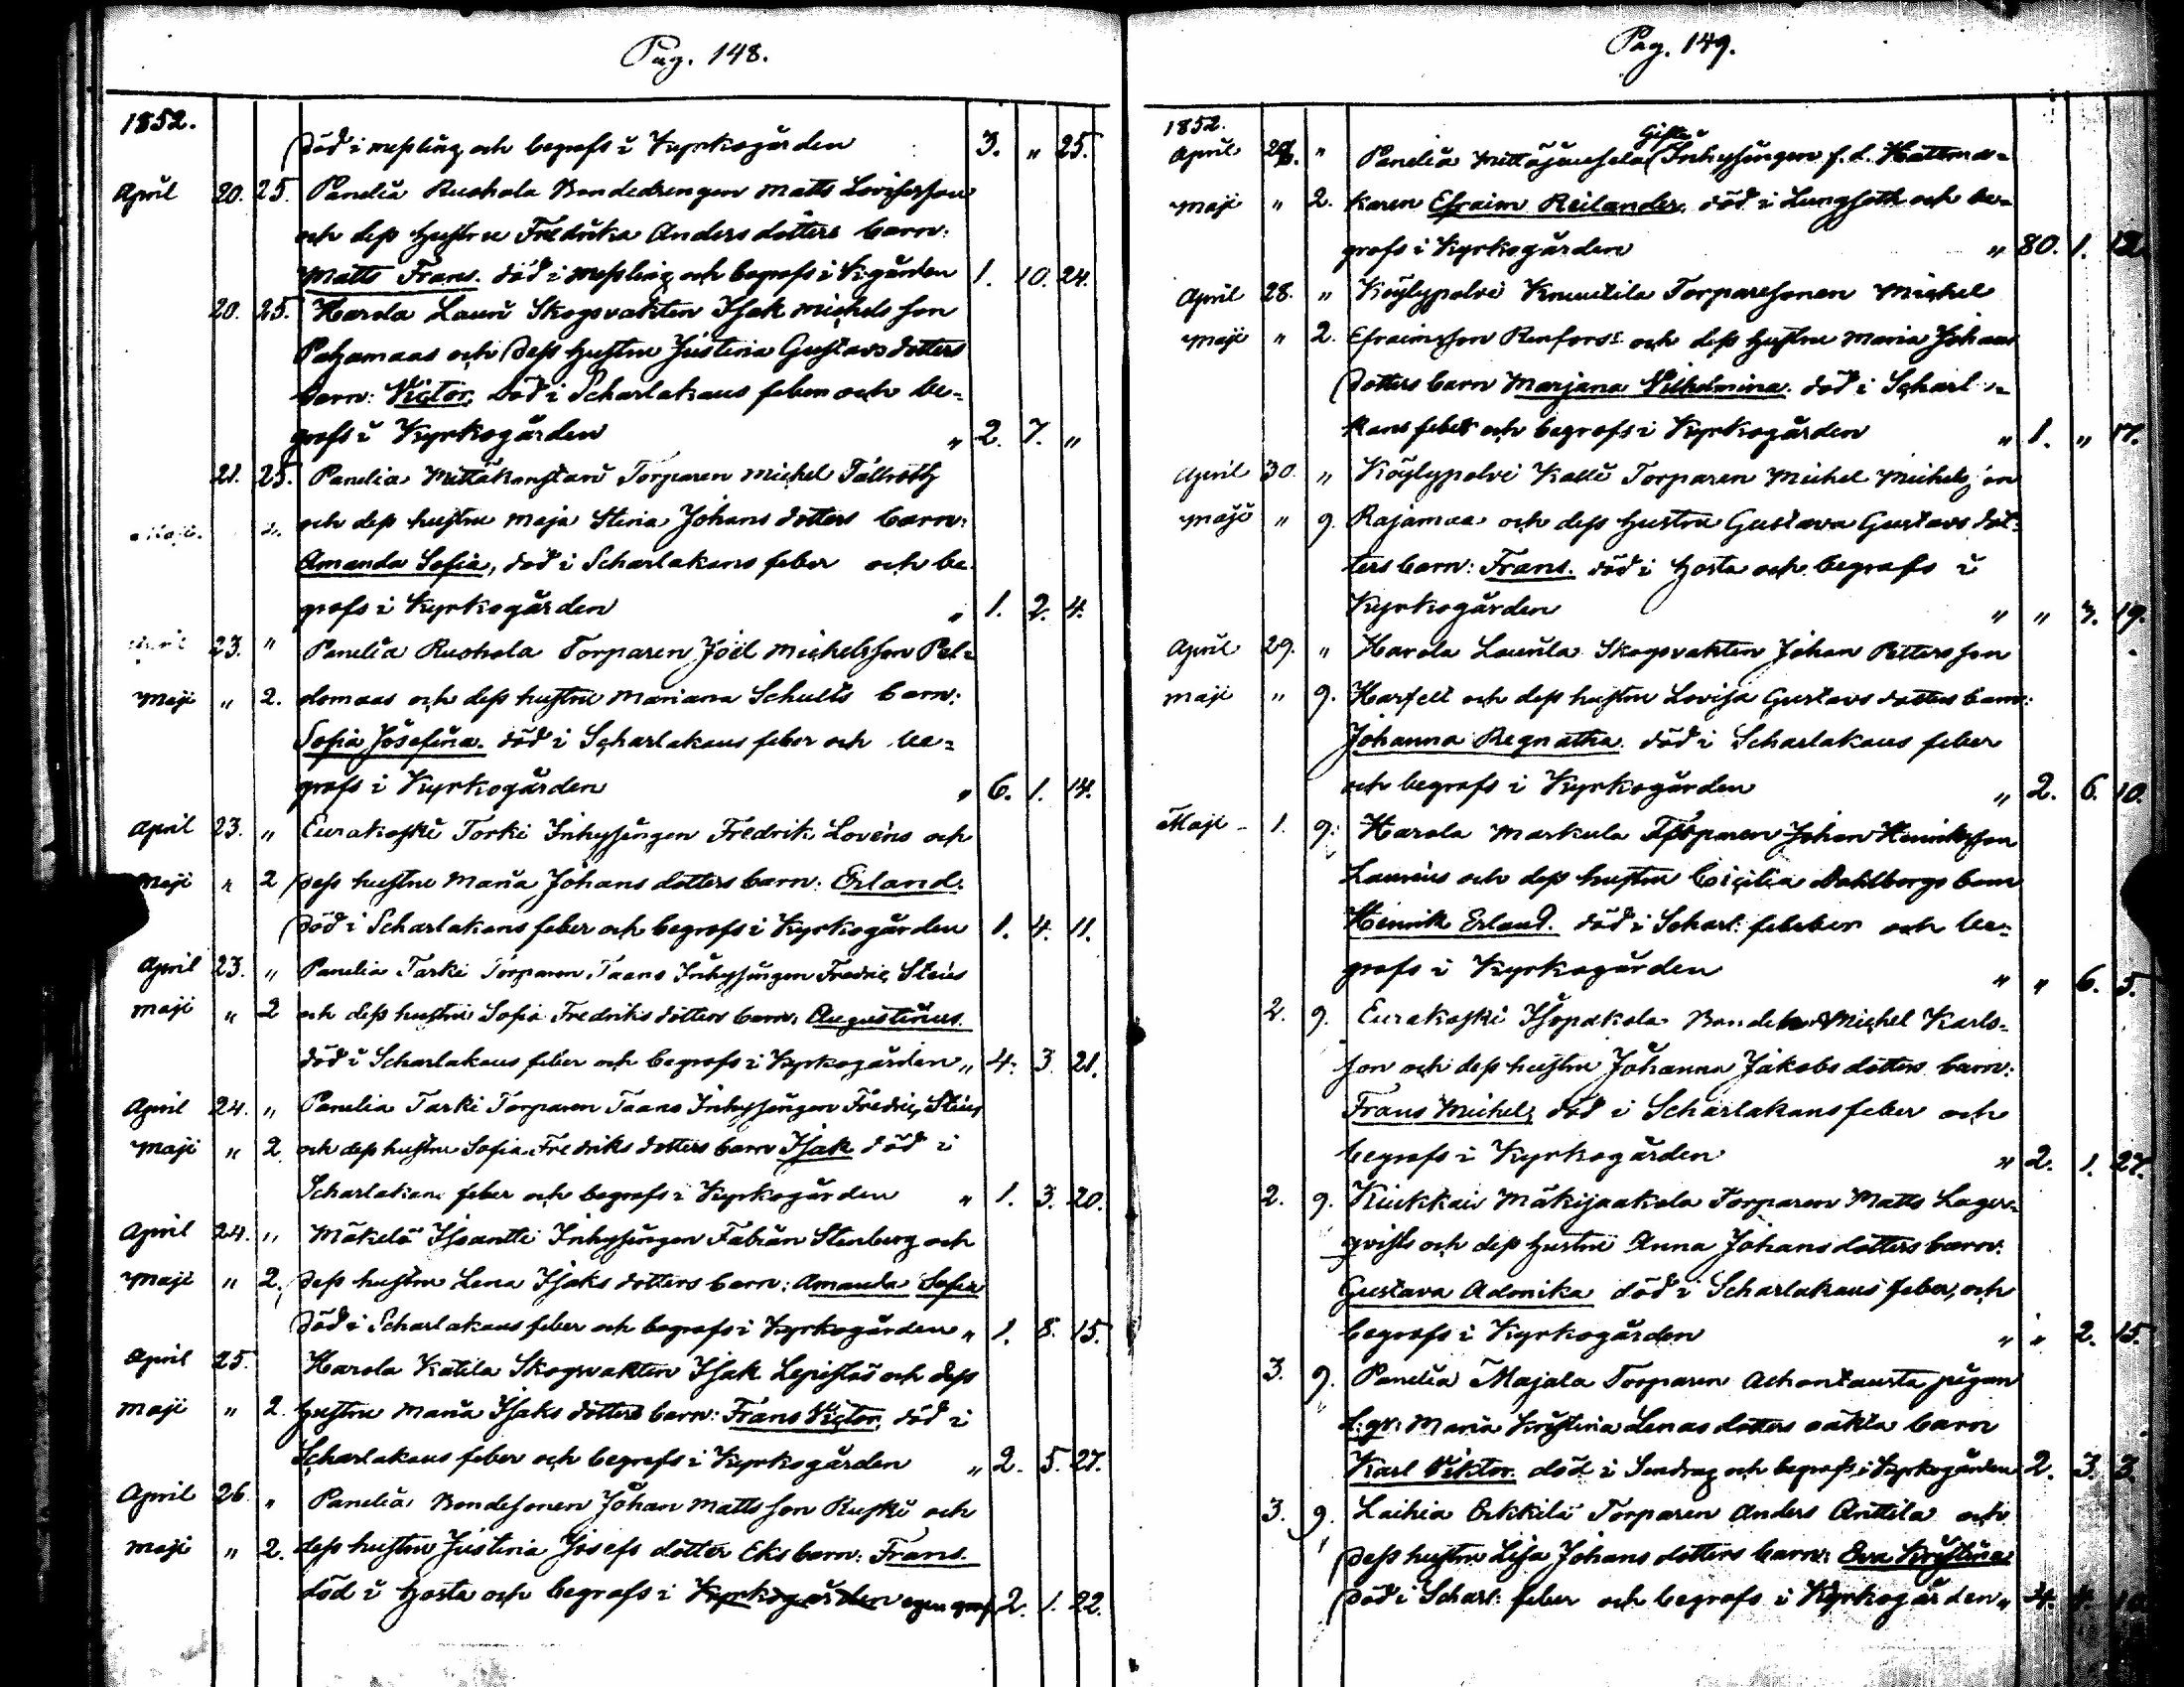 Pag. 148.
1852.
död i messling och begrofs i Kyrkogården 3. " 25.
April 20. 25. Panelia Ruohola Bondedrengen Matts Lovisasson
och dess hustru Fredrika Anders dotters barn:
Matts Frans. död i messling och begrofs i K:gården 1. 10. 24.
20. 25. Harola Lauri Skogsvakten Isak Michelsson
Pahamaas och dess hustru Justina Gustavs dotters
barn: Victor, död i Scharlakans feber och be-
grofs i Kyrkogården " 2. 7. "
21. 25. Panelia Mittäkonstari Torparen Michel Tällroth
Maji. 2. och dess hustru Maja Stina Johans dotters barn:
Amanda Sofia, död i Scharlakans feber och be-
grofs i Kyrkogården " 1. 2. 4.
April 23. " Panelia Ruohola Torparen Joël Michelsson Pel-
Maji " 2. domaas och dess hustru Mariana Schults barn:
Sofia Josefina. död i Scharlakans feber och be-
grofs i Kyrkogården " 6. 1. 14.
April 23. " Eurakoski Torki Inhysingen Fredrik Lovéns och
Maji " 2 dess hustru Maria Johans dotters barn: Erland.
död i Scharlakans feber och begrofs i Kyrkogården 1. 4. 11.
April 23. " Panelia Tarki Torparen Taans Inhysingen Fredric Stéus
Maji " 2 och dess hustru Sofia Fredriks dotters barn: Augustinus.
död i Scharlakans feber och begrofs i Kyrkogården " 4. 3. 21.
April 24. " Panelia Tarki Torparen Taans Inhysingen Fredric Stéus
Maji " 2 och dess hustru Sofia Fredriks dotters barn Isak död i
Scharlakans feber och begrofs i Kyrkogården " 1. 3. 20.
April 24. " Mäkelä Isoantti Inhysingen Fabian Stenberg och
Maji " 2. dess hustru Lena Isaks dotters barn: Amanda Sofia
död i Scharlakans feber och begrofs i Kyrkogården " 1. 8. 15.
April 25. Harola Katila Skogsvakten Isak Lepistös och dess
Maji " 2. hustru Maria Isaks dotters barn: Frans Victor, död i
Scharlakans feber och begrofs i Kyrkogården " 2. 5. 27.
April 26. " Panelia Bondesonen Johan Mattsson Ruski och
Maji " 2. dess hustru Justina Josefs dotter Eks barn: Frans.
död i Hosta och begrofs i Kyrkogården egen graf 2. 1. 22.
Pag. 149.
1852.
April 28. " Panelia Mittäjauhola Gifte Inhysingen f.d. Hattma-
Maji " 2. karen Efraim Reilander, död i Lungsoth och be-
grofs i Kyrkogården " 80. 1. 12.
April 28. " Köylypolvi Knuutila Torparesonen Michel
Maji " 2. Efraimsson Renfors: och dess hustru Maria Johans
dotters barn Marjana Vilhelmina. död i Scharl a-
kans feber och begrofs i Kyrkogården " 1. " 17.
April 30. " Köylypolvi Kalli Torparen Michel Michelsson
Maji " 9. Rajamaa och dess hustru Gustava Gustavs dot-
ters barn: Frans. död i Hosta och begrofs i
Kyrkogården " " 3. 19.
April 29. " Harola Laurila Skogsvakten Johan Pettersson
Maji " 9. Harfelt och dess hustru Lovisa Gustavs dotters barn:
Johanna Regnatha. död i Scharlakans feber
och begrofs i Kyrkogården " 2. 6. 10.
Maji 1. 9. Harola Markula Torparen Johan Henriksson
Laurius och dess hustru Cicilia Dahlbergs barn
Henrik Erland. död i Scharl: feberber och be-
grofs i Kyrkogården " " 6. 5.
2. 9. Eurakoski Isopakola Bonden Michel Karls-
son och dess hustru Johanna Jakobs dotters barn:
Frans Michel, död i Scharlakans feber och
begrofs i Kyrkogården " 2. 1. 27.
2. 9. Kiukkais Mäkijaakola Torparen Matts Lager-
qvists och dess hustru Anna Johans dotters barn:
Gustava Adonika död i Scharlakans feber, och
begrofs i Kyrkogården " " 2. 15.
3. 9. Panelia Majala Torparen Achontausta pigan
Maria Kristina Lenas dotters oäkta barn
Karl Viktor. död i Sendrag och begrofs i Kyrkogården 2. 3. 3.
3. 9. Laihia Erkkilä Torparen Anders Anttila och
dess hustru Lisa Johans dotters barn: Eva Kristina
död i Scharl: feber och begrofs i Kyrkogården " 4.